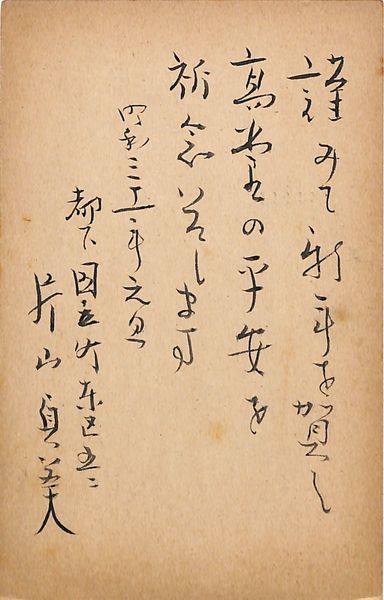 謹みて新年を賀し
高堂の平安を
祈念いたします
昭和三十一年元旦
都下国立町東区五ノ二
片山貞美